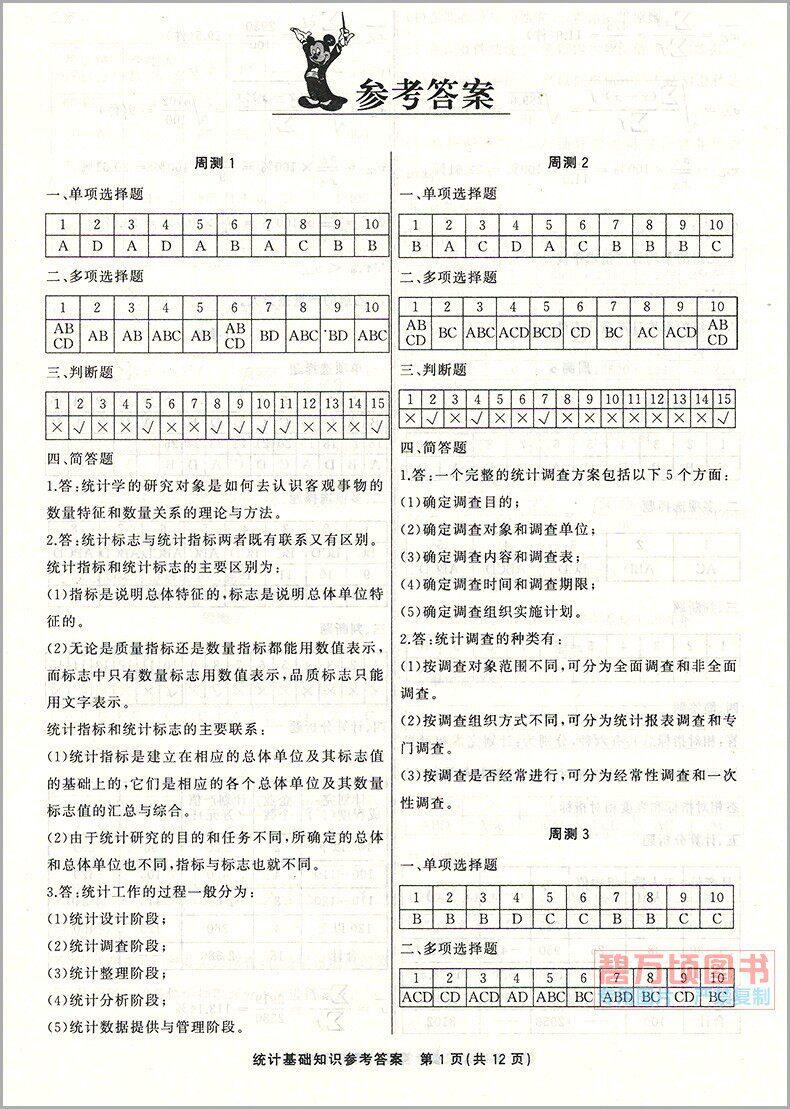 参考答案
周测 1
一、单项选择题
1 2 3 4 5 6 7 8 9 10
A D A D A B A C B B
二、多项选择题
1 2 3 4 5 6 7 8 9 10
ABCD AB AB ABC AB ABCD BD ABC BD ABC
三、判断题
1 2 3 4 5 6 7 8 9 10 11 12 13 14 15
× √ × × √ × × √ √ √ √ × × × √
四、简答题
1.答:统计学的研究对象是如何去认识客观事物的
数量特征和数量关系的理论与方法。
2.答:统计标志与统计指标两者既有联系又有区别。
统计指标和统计标志的主要区别为:
(1)指标是说明总体特征的,标志是说明总体单位特
征的。
(2)无论是质量指标还是数量指标都能用数值表示,
而标志中只有数量标志用数值表示,品质标志只能
用文字表示。
统计指标和统计标志的主要联系:
(1)统计指标是建立在相应的总体单位及其标志值
的基础上的;它们是相应的各个总体单位及其数量
标志值的汇总与综合。
(2)由于统计研究的目的和任务不同,所确定的总体
和总体单位也不同,指标与标志也就不同。
3.答:统计工作的过程一般分为:
(1)统计设计阶段;
(2)统计调查阶段;
(3)统计整理阶段;
(4)统计分析阶段;
(5)统计数据提供与管理阶段。
周测 2
一、单项选择题
1 2 3 4 5 6 7 8 9 10
B A C D A C B B B C
二、多项选择题
1 2 3 4 5 6 7 8 9 10
ABCD BC ABC ACD BCD CD BC AC ACD ABCD
三、判断题
1 2 3 4 5 6 7 8 9 10 11 12 13 14 15
× √ × √ × × √ × × × × × × × √
四、简答题
1.答:一个完整的统计调查方案包括以下 5 个方面:
(1)确定调查目的;
(2)确定调查对象和调查单位;
(3)确定调查内容和调查表;
(4)确定调查时间和调查期限;
(5)确定调查组织实施计划。
2.答:统计调查的种类有:
(1)按调查对象范围不同,可分为全面调查和非全面
调查。
(2)按调查组织方式不同,可分为统计报表调查和专
门调查。
(3)按调查是否经常进行,可分为经常性调查和一次
性调查。
周测 3
一、单项选择题
1 2 3 4 5 6 7 8 9 10
B B B D C C B B C C
二、多项选择题
1 2 3 4 5 6 7 8 9 10
ACD CD ACD AD ABC BC ABD BC CD BC
碧万顷图书
统计基础知识参考答案 第 1 页(共 12 页)